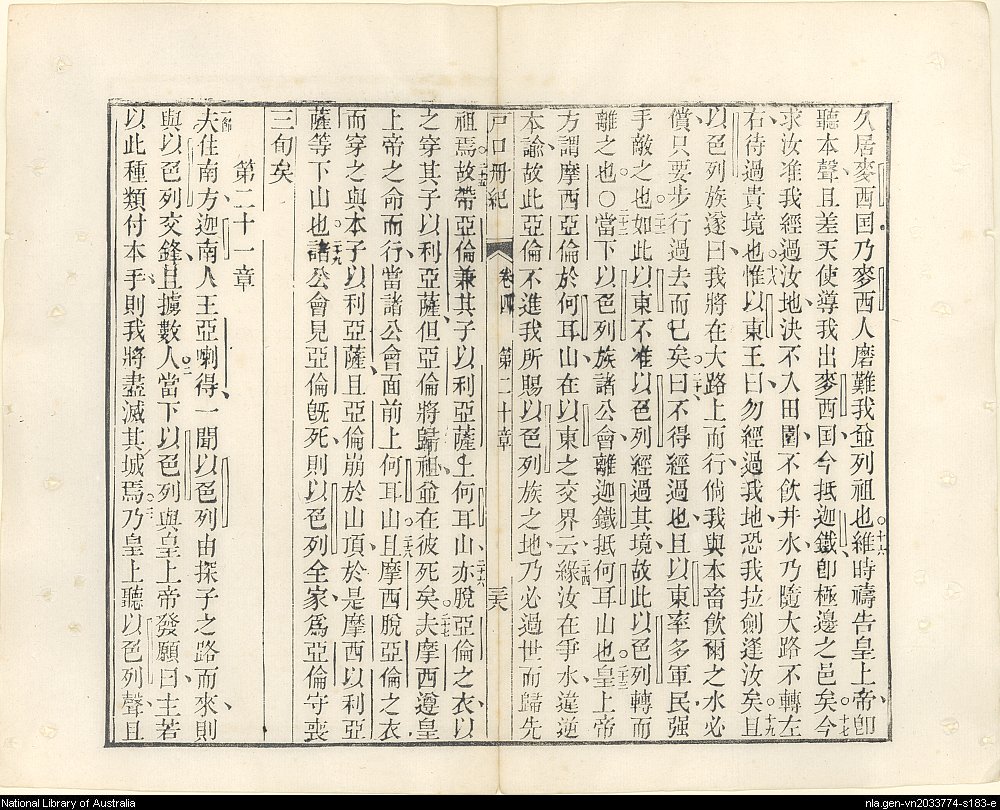 久居麥西囯乃麥西人磨難我並列祖也十六維時禱告皇上帝卽
聽本聲且差天使導我出麥西囯今抵迦鐵卽極邊之邑矣十七今
求汝准我經過汝地決不入田園不飲井水乃隨大路不轉左
右待過貴境也十八惟以東王曰勿經過我地恐我拉劍逢汝矣十九且
以色列族遂曰我將在大路上而行倘我與本畜飲爾之水必
償只要步行過去而已矣二十曰不得經過也且以東率多軍民强
手敵之也二十一如此以東不准以色列經過其境故此以色列轉而
離之也○二十二當下以色列族諸公會離迦鐵抵何耳山也二十三皇上帝
方謂摩西亞倫於何耳山在以東之交界云二十四緣汝在爭水違逆
本諭故此亞倫不進我所賜以色列族之地乃必過世而歸先
戶口册紀 卷四 第二十章 三六
祖焉二十五故帶亞倫兼其子以利亞薩上何耳山二十六亦脫亞倫之衣以
之穿其子以利亞薩但亞倫將歸祖並在彼死矣二十七夫摩西遵皇
上帝之命而行當諸公會面前上何耳山二十八且摩西脫亞倫之衣
而穿之與本子以利亞薩且亞倫崩於山頂於是摩西以利亞
薩等下山也二十九諸公會見亞倫旣死則以色列全家爲亞倫守喪
三旬矣
第二十一章
一節夫住南方迦南人王亞喇得一聞以色列由探子之路而來則
與以色列交鋒且擄數人二當下以色列與皇上帝發願曰主若
以此種類付本手則我將盡滅其城焉三乃皇上聽以色列聲且
National Library of Australia
nla.gen-vn2033774-s183-e